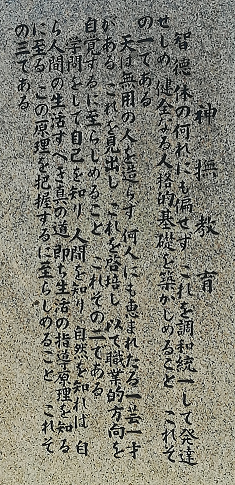 神撫教育
智徳体の何れにも偏せず これを調和統一して発達
せしめ 健全なる人格的基礎を築かしめること これそ
の一である
天は無用の人を造らず 何人にも恵まれたる一芸一才
がある これを見出し これを啓培し 以て職業的方向を
自覚するに至らしめること これその二である
学問をして自己を知り 人間を知り 自然を知れば 自
ら人間の生活すべき真の道 即ち生活の指導原理を知る
に至る この原理を把握するに至らしめること これそ
の三である